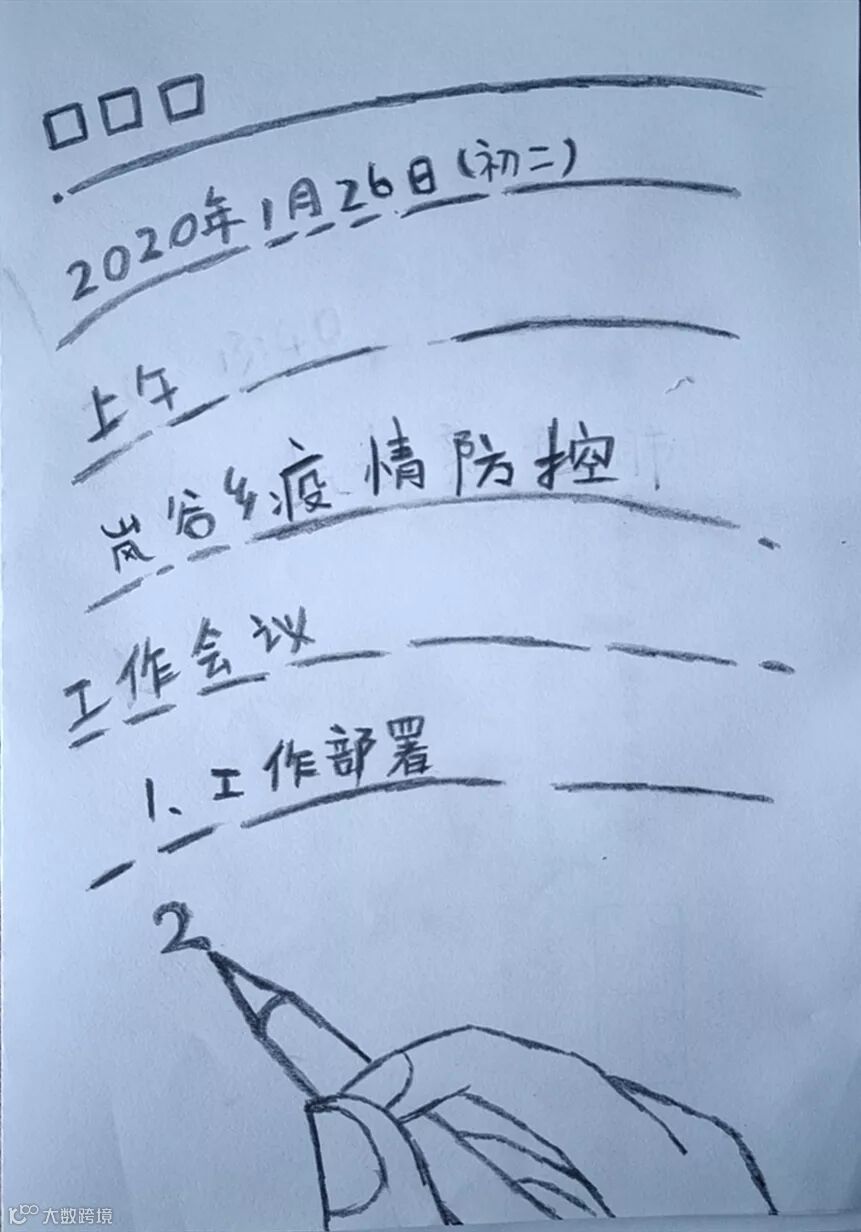 □□□
2020年1月26日(初二)
上午
岚谷乡疫情防控
工作会议
1、工作部署
2
大数跨境